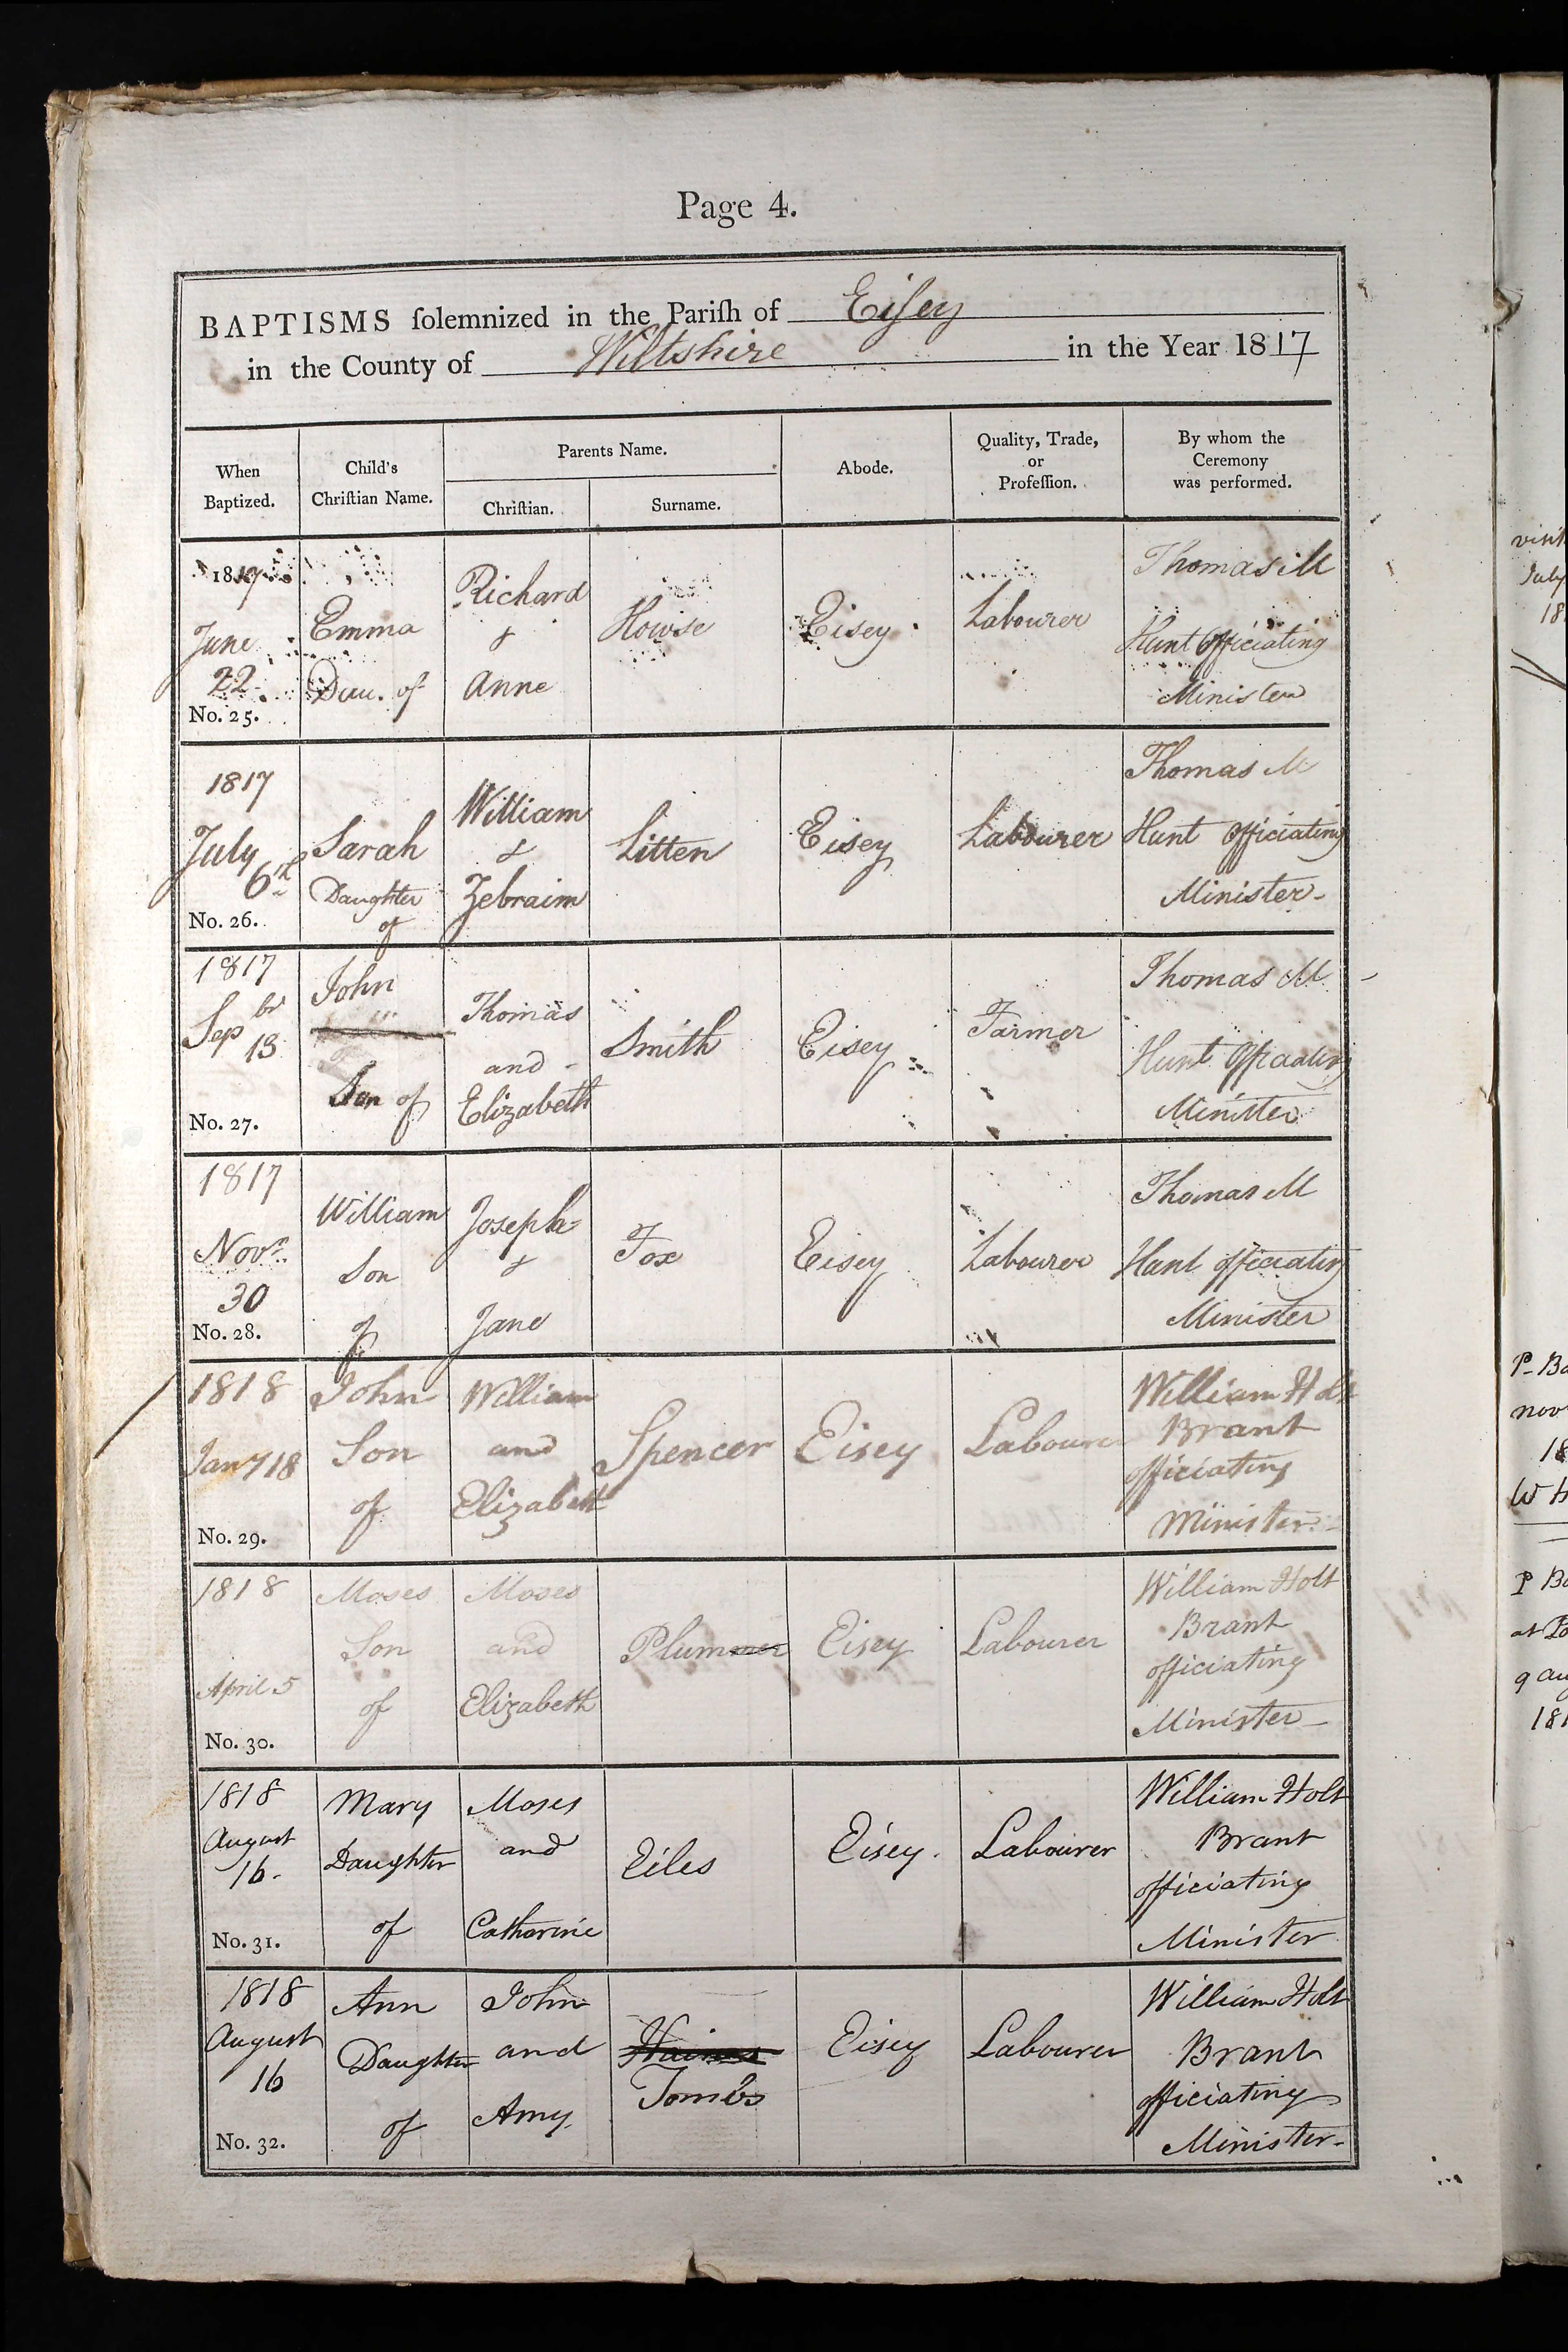 Page 4.
BAPTISMS ſolemnized in the Pariſh of Eiſey
in the County of Wiltshire in the Year 1817
When Baptized.
Child's Chriſtian Name.
Parents Name.
Chriſtian.
Surname.
Abode.
Quality, Trade, or Profeſſion.
By whom the Ceremony was performed.
1817
June
22
No. 25.
Emma
Dau. of
Richard
&
Anne
Howse
Eisey
Labourer
Thomas M
Hunt Officiating
Minister
1817
July
6th
No. 26.
Sarah
Daughter
of
William
&
Zebraim
Litten
Eisey
Labourer
Thomas M
Hunt Officiating
Minister-
1817
Sepbr
13
No. 27.
John
Son of
Thomas
and -
Elizabeth
Smith
Eisey
Farmer
Thomas M
Hunt Officiating
Minister
1817
Novr.
30
No. 28.
William
Son
of
Joseph
&
Jane
Fox
Eisey
Labourer
Thomas M
Hunt officiating
Minister
1818
Jany 18
No. 29.
John
Son
of
William
and
Elizabeth
Spencer
Eisey
Labourer
William Holt
Brant
officiating
Minister-
1818
April 5
No. 30.
Moses
Son
of
Moses
and
Elizabeth
Plummer
Eisey
Labourer
William Holt
Brant
officiating
Minister-
1818
August
16.
No. 31.
Mary
Daughter
of
Moses
and
Catharine
Eiles
Eisey.
Labourer
William Holt
Brant
officiating
Minister
1818
August
16
No. 32.
Ann
Daughter
of
John
and
Amy
Haines
Tombs
Eisey
Labourer
William Holt
Brant
officiating
Minister-
July
18
P. Ba
nov
18
W H
P Ba
at
9 au
181